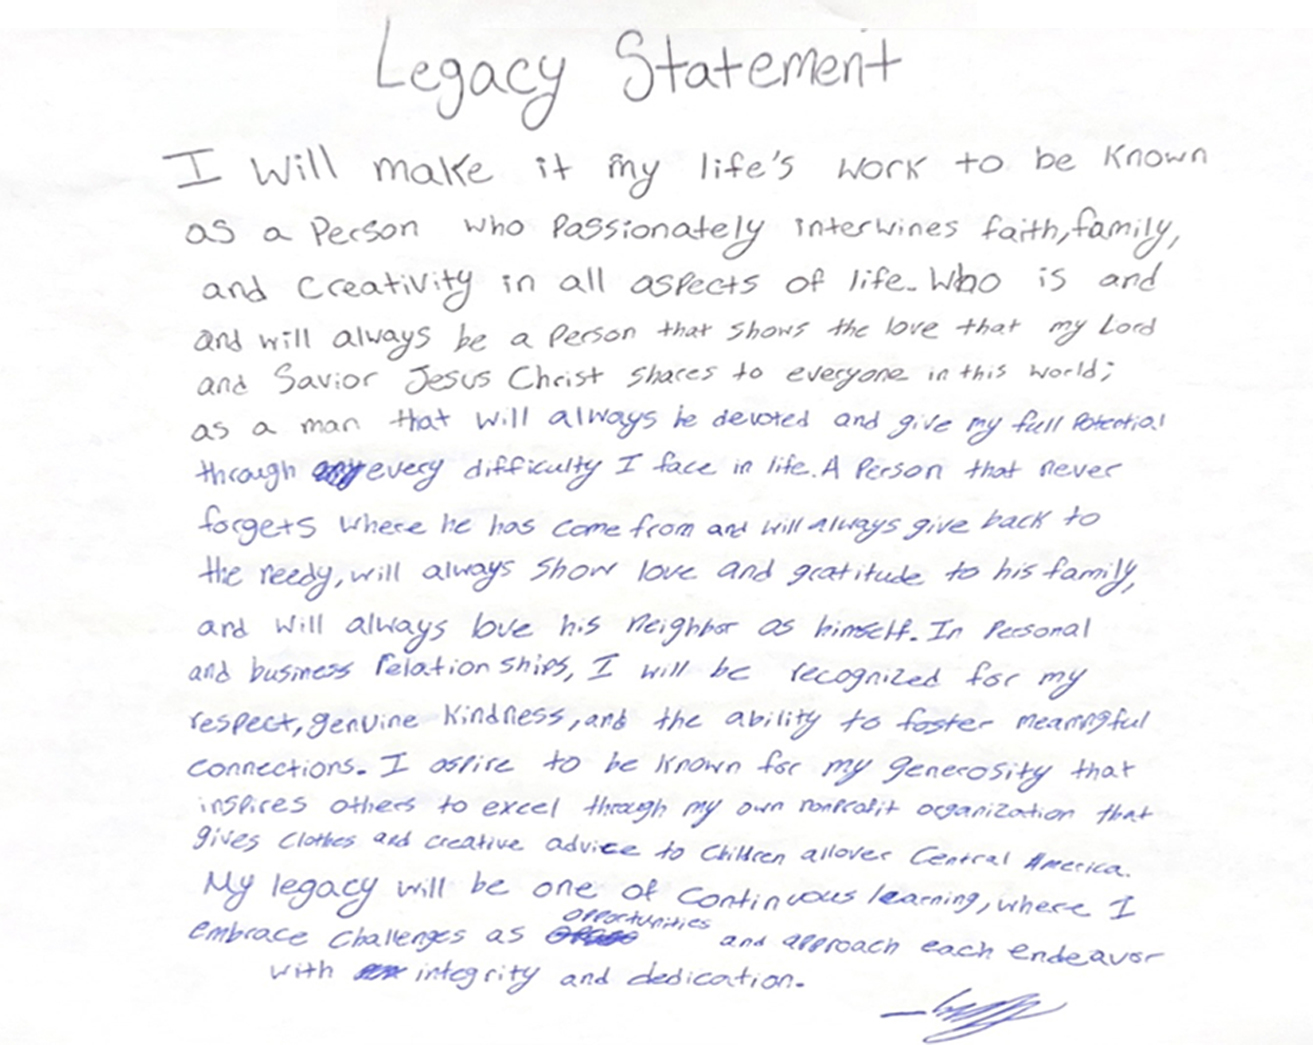 Legacy Statement
I will make it my life's work to be known
as a Person who Passionately intertwines faith, family,
and Creativity in all aspects of life. Who is and
and will always be a Person that shows the love that my Lord
and Savior Jesus Christ shares to everyone in this world;
as a man that will always be devoted and give my full Potential
through every difficulty I face in life. A Person that never
forgets where he has come from and will always give back to
the needy, will always show love and gratitude to his family,
and will always love his neighbor as himself. In Personal
and business relationships, I will be recognized for my
respect, genuine kindness, and the ability to foster meaningful
connections. I aspire to be known for my generosity that
inspires others to excel through my own nonprofit organization that
gives clothes and creative advice to children all over Central America.
My legacy will be one of continuous learning, where I
embrace challenges as opportunities and approach each endeavor
with integrity and dedication.